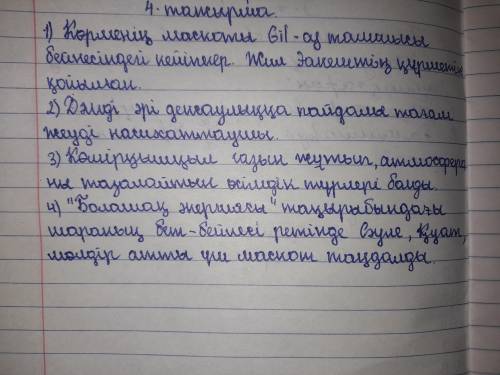 4. тапсырма.
1) Көрменің маскоты Gil-су тамшысы
бейнесіндегі кейіпкер. Жил Эанештің құрметіне
қойылған.
2) Дәмді әрі денсаулыққа пайдалы тағам
жеуді насихаттаушы.
3) Көмірқышқыл газын жұтып, атмосфера
ны тазалайтын өсімдік түрлері болды.
4) "Болашақ энергиясы" тақырыбындағы
шараның бет-бейнесі ретінде Сәуле, Қуат,
мөлдір атты үш маскот таңдалды.